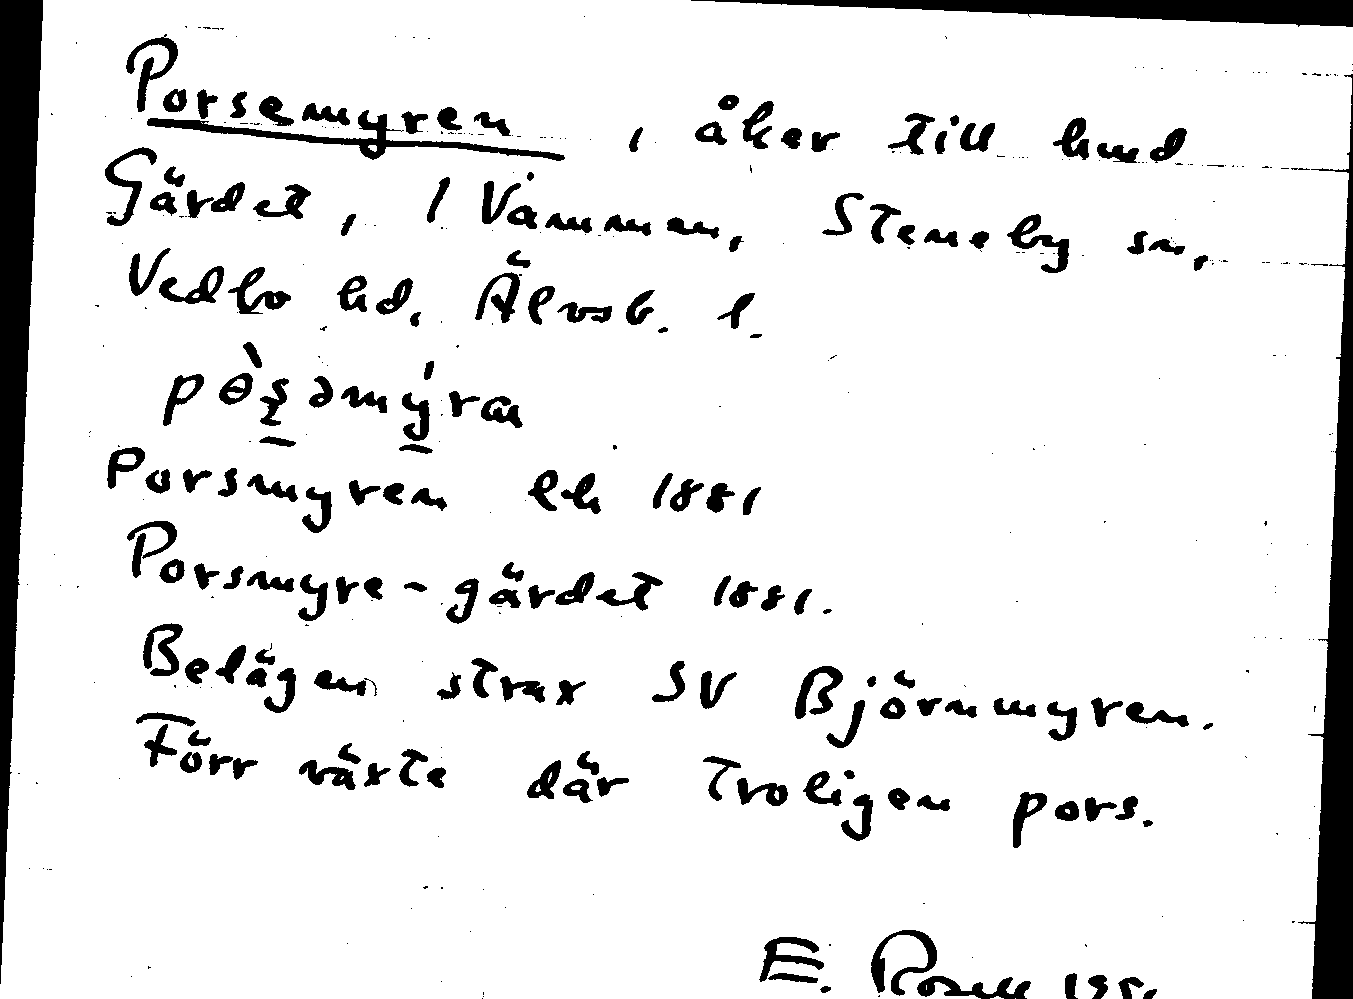 Porsemyren, åker till hmd
Gärdet, 1 Vammen, Steneby sn,
Vedbo hd. Älvsb. l.
Porsmyren lh 1881
Porsmyre-gärdet 1881.
Belägen strax SV Björnmyren.
Förr växte där troligen pors.
E.